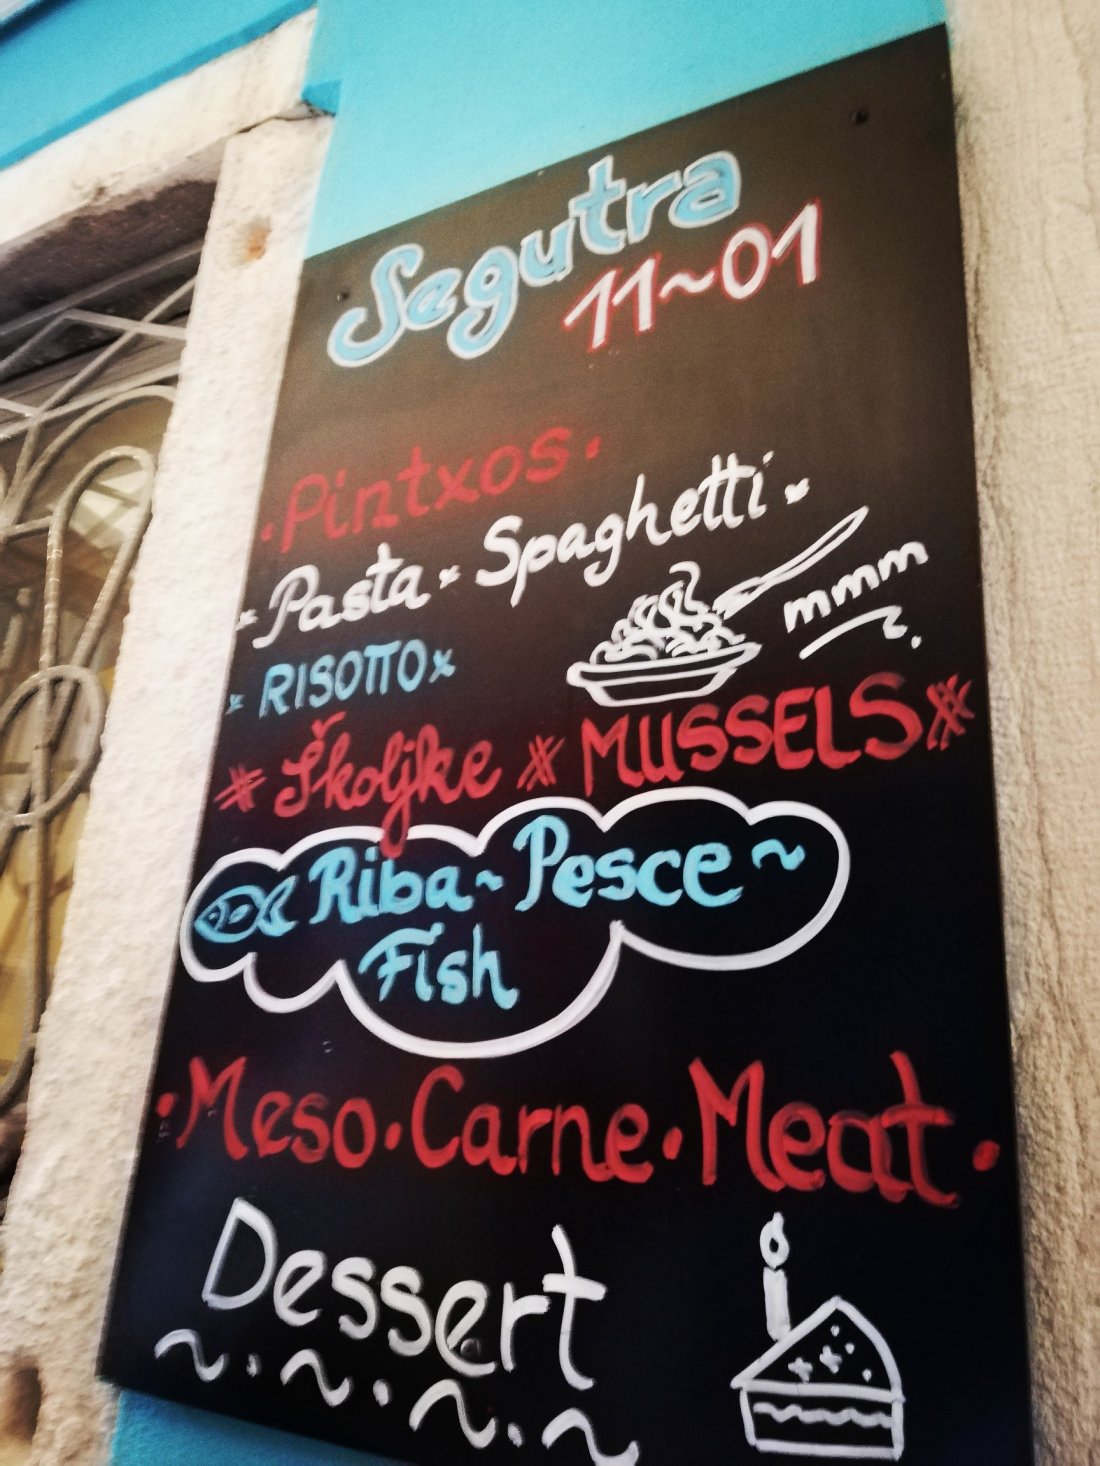 Segutra
11~01
·Pintxos·
Pasta × Spaghetti ×
mmm
RISOTTO ×
Školjke MUSSELS
Riba ~ Pesce ~
Fish
·Meso·Carne·Meat·
Dessert
~·~·~·~